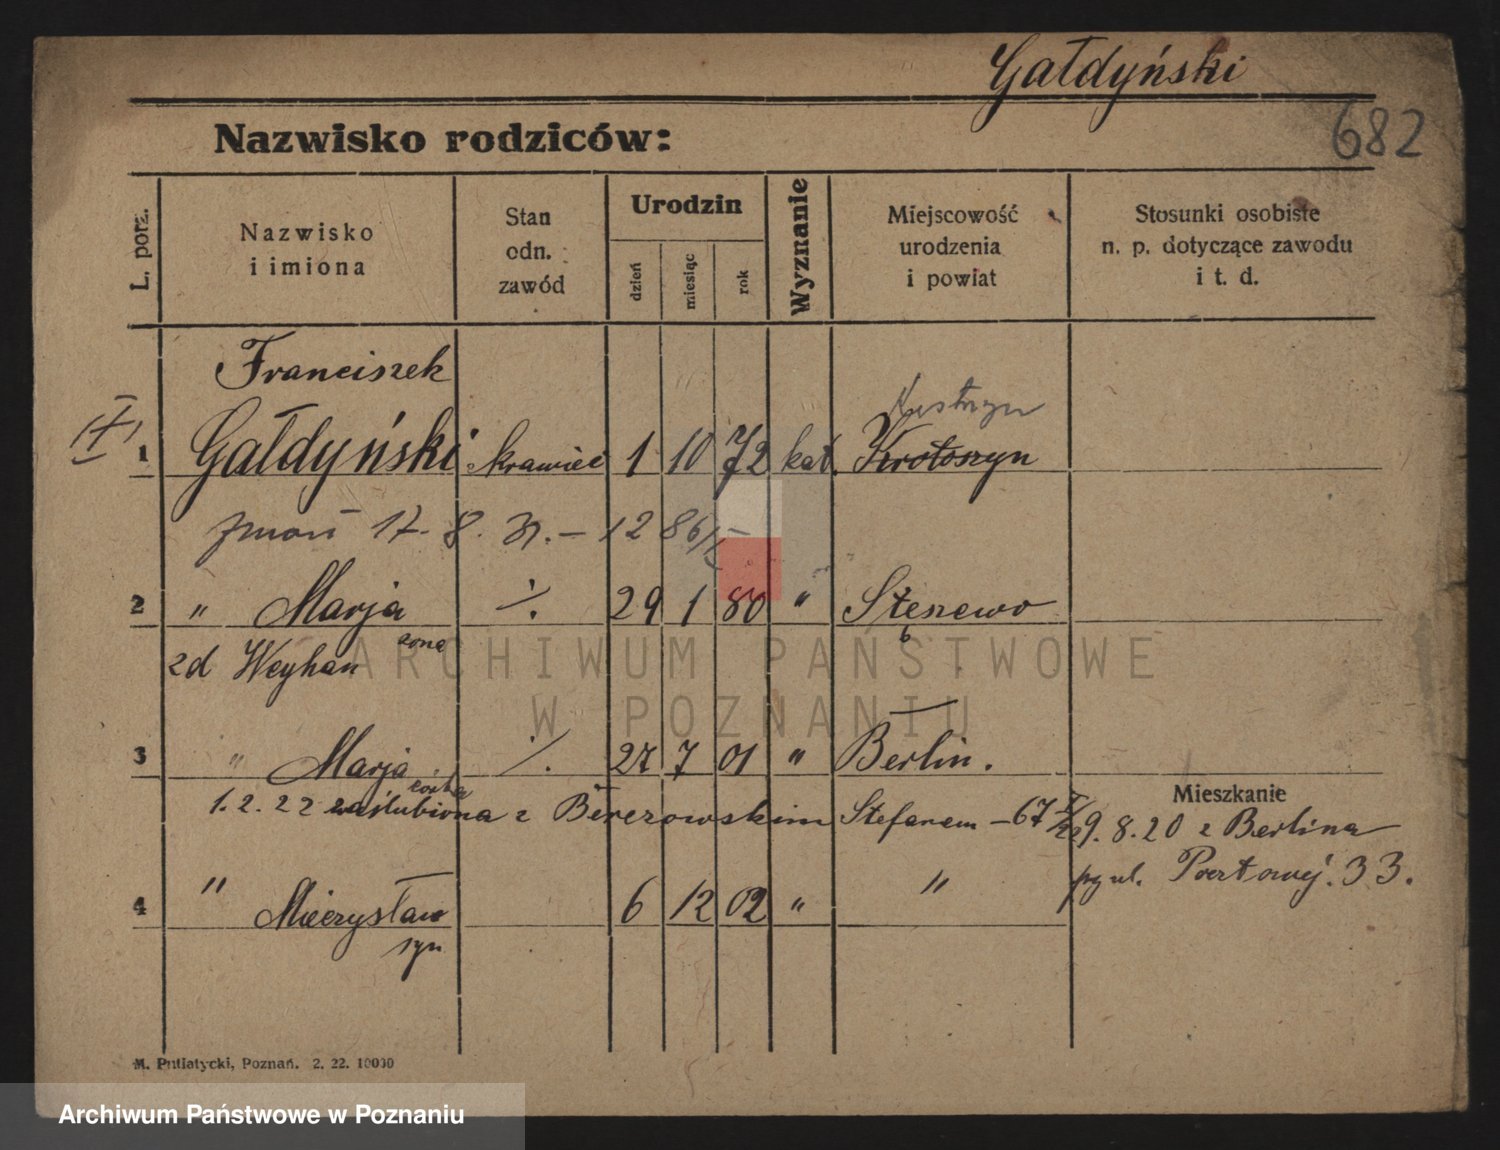 Gałdyński
682
Nazwisko rodziców:
L. porz.
Nazwisko
i imiona
Stan
odn.
zawód
Urodzin
dzień
miesiąc
rok
Wyznanie
Miejscowość
urodzenia
i powiat
Stosunki osobiste
n. p. dotyczące zawodu
i t. d.
Franciszek
1 Gałdyński krawiec 1 10 72 kat. Krotoszyn
Kostrzyn
17. 8. 31. – 12 86/
2 " Marja ·/. 29 1 80 " Stenewo
żona
zd Weyhan
3 " Marja ·/. 27 7 01 " Berlin.
córka
1. 2. 22 zaślubiona z Bierzowskim Stefanem – 67
Mieszkanie
9. 8. 20 z Berlina
ul. Pocztowej. 33.
4 " Mieczysław 6 12 02 " "
syn
M. Putiatycki, Poznań. 2. 22. 10000
ARCHIWUM PAŃSTWOWE
W POZNANIU
Archiwum Państwowe w Poznaniu